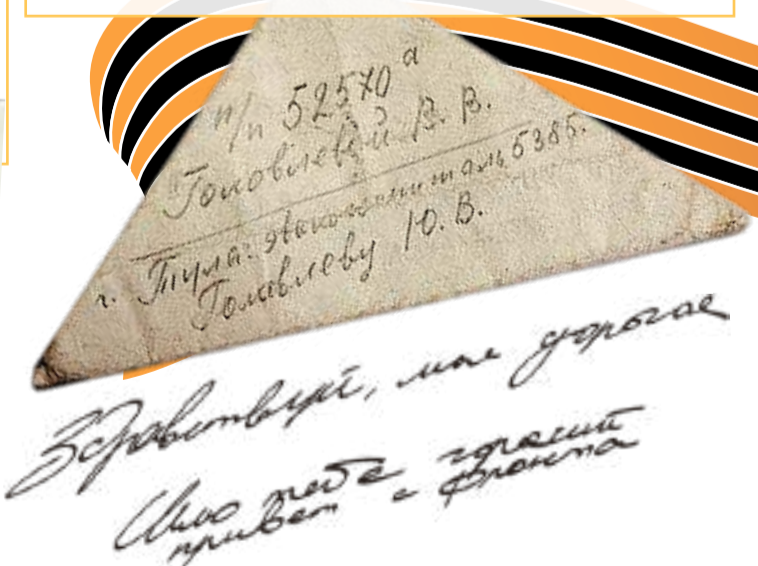 п/п 52570 а
Головлевой В. В.
г. Тула. эвакогоспиталь 5385.
Головлеву Ю. В.
Здравствуй, моя дорогая
Шлю тебе горячий
привет с фронта